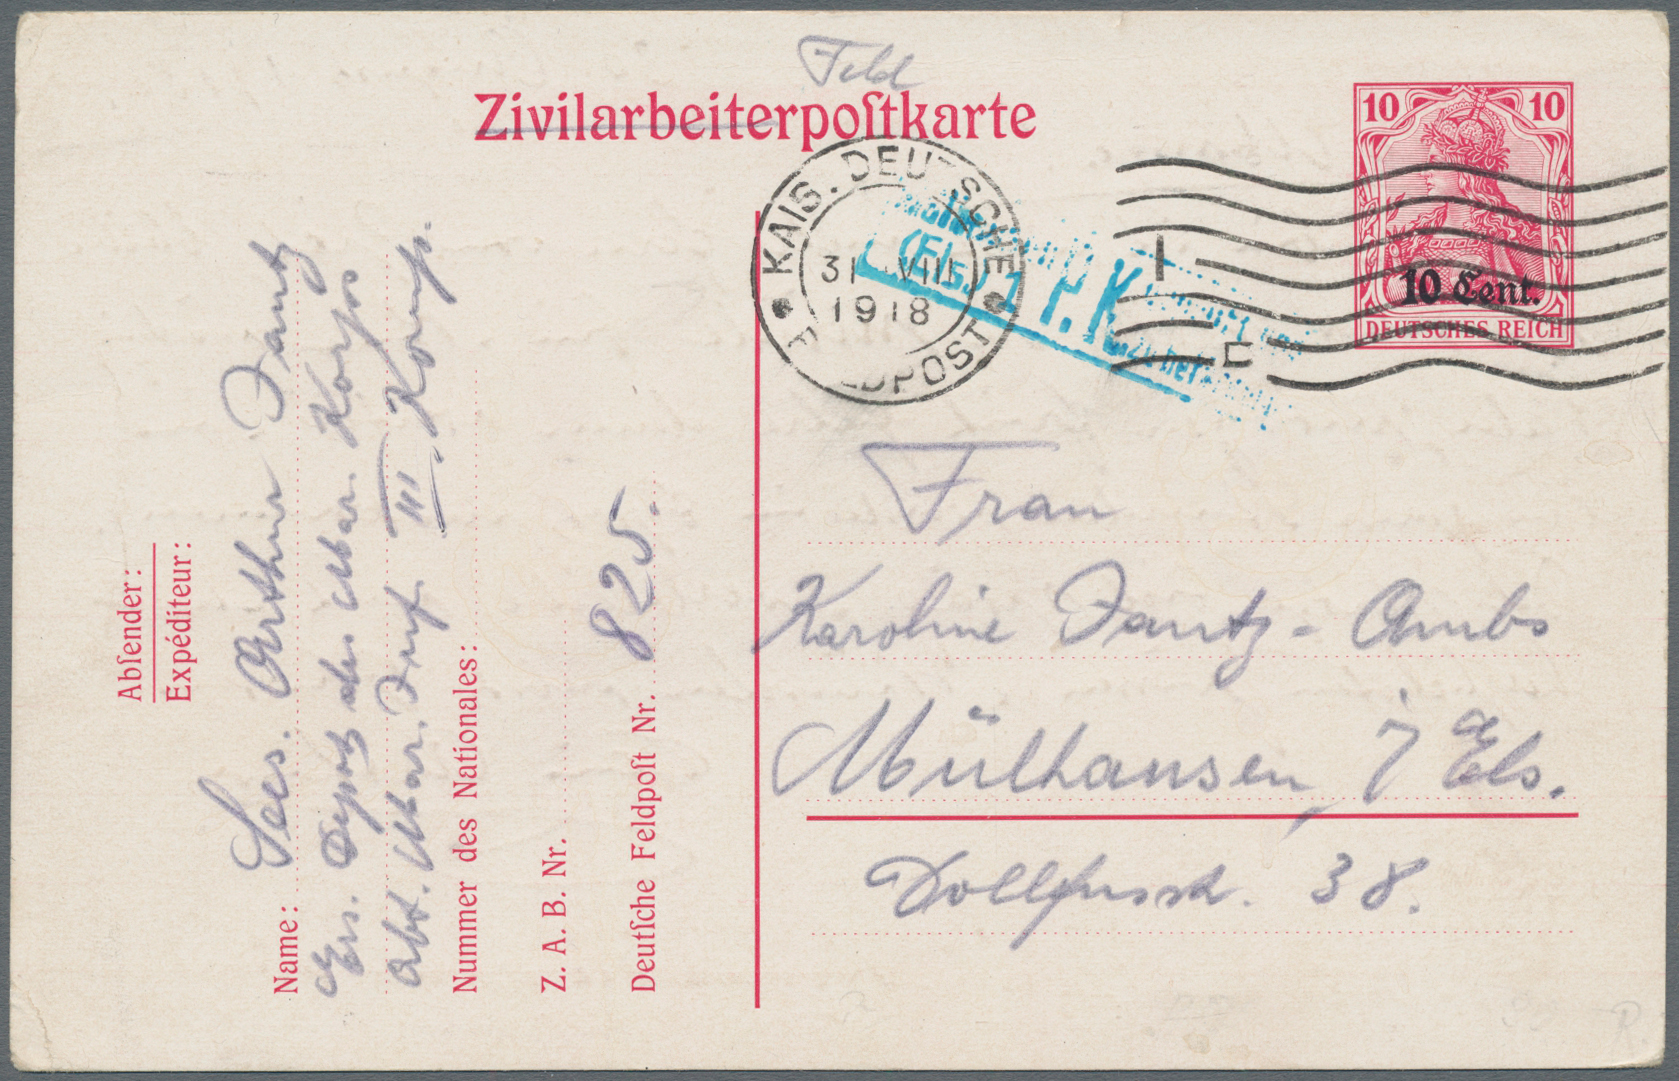 Feld
Zivilarbeiterpoſtkarte
10 10
10 Cent.
DEUTSCHES REICH
KAIS. DEUTSCHE
FELDPOST
31 VIII
1918
(Els.)
P.K.
Abſender:
Expéditeur:
Name: Sees. Arthur Jantz
Ers. Depot des Mar. Korps
Abt. Mar. Inf. III. Komp.
Nummer des Nationales:
Z. A. B. Nr.
Deutſche Feldpoſt Nr. 825.
Frau
Karoline Jantz-Ambs
Mülhausen i/Els.
Dollfusstr. 38.